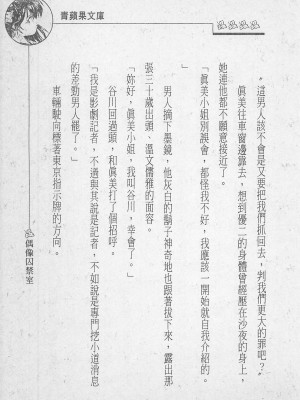 青蘋果文庫
〝這男人該不會是又要把我們抓回去，判我們更大的罪吧？〞
真美往車窗邊靠去，想到優二的身體曾經壓在沙夜的身上，
她連他都不願意接近了。
「真美小姐別誤會，都怪我不好，我應該一開始就自我介紹的。
」
男人摘下墨鏡，他灰白的鬍子神奇地也跟著拔下來，露出那
張三十歲出頭、溫文儒雅的面容。
「妳好，真美小姐，我叫谷川，幸會了。」
谷川回過頭，和真美打了個招呼。
「我是影劇記者，不過與其說是記者，不如說是專門挖小道消息
的差勁男人罷了。」
車輛駛向標著東京指示牌的方向。
偶像囚禁室